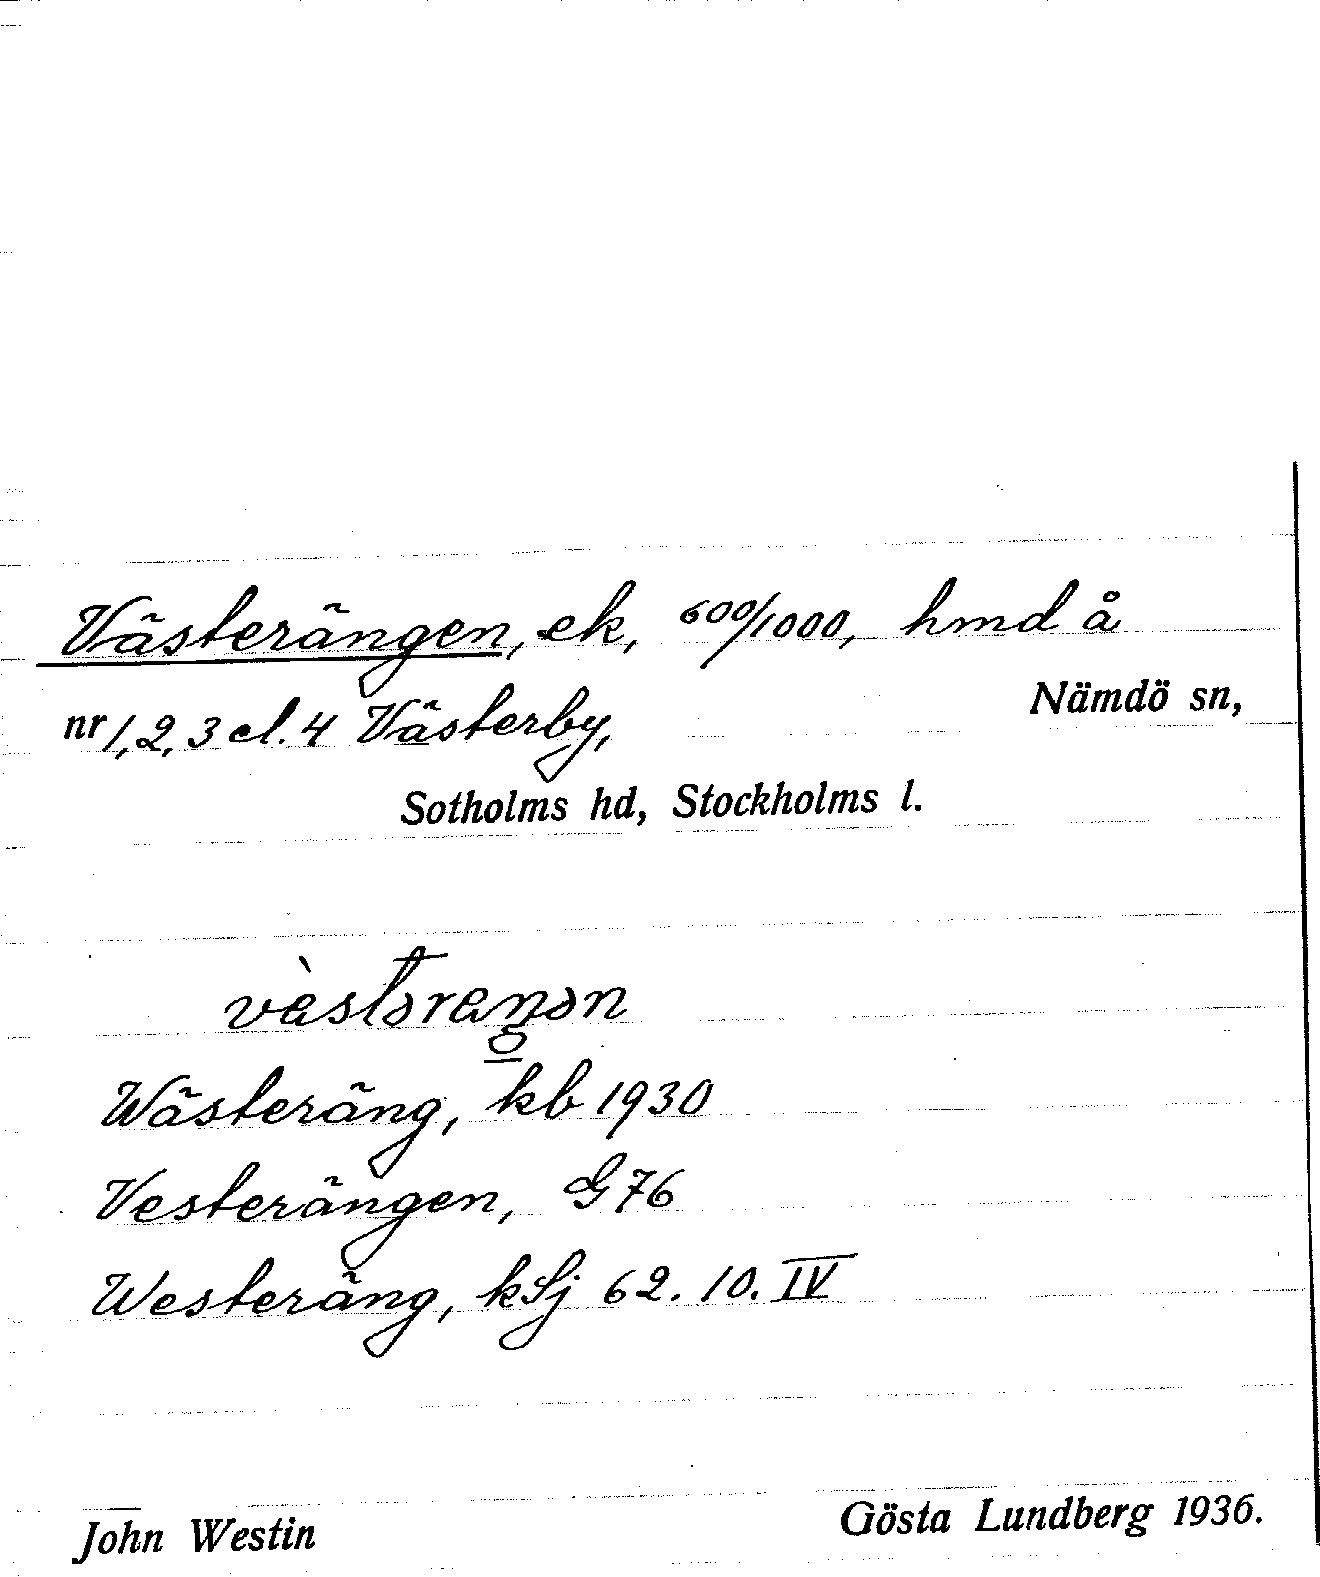 Västerängen, ek, 600/1000, hmd å
nr 1, 2, 3 el. 4 Västerby, Nämdö sn,
Sotholms hd, Stockholms l.
vèstəraŋən
Wästeräng, kb 1930
Vesterängen, G 76
Westeräng, kSj 62. 10. IV
John Westin Gösta Lundberg 1936.